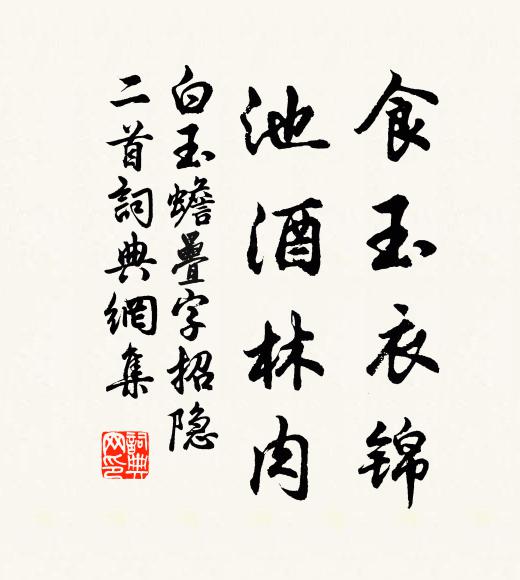 食玉衣锦
池酒林肉
白玉蟾疊字招隐
二首詞典網集
詞典
网印